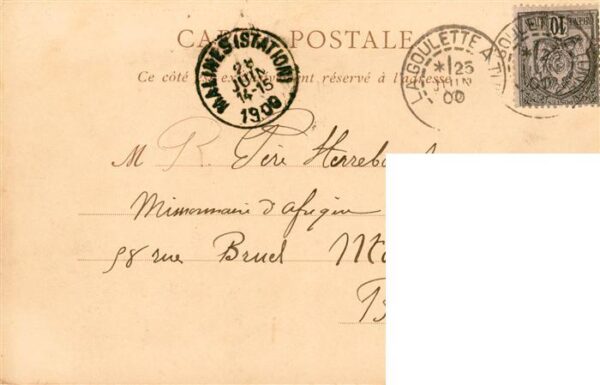 CARTE POSTALE
Ce côté est exclusivement réservé à l'adresse
MALINES (STATION)
JUIN
14-15
1900
LA GOULETTE A
25
JUIN
00
10
M R. Père
Missionnaire d'Afrique
58 rue Bruel